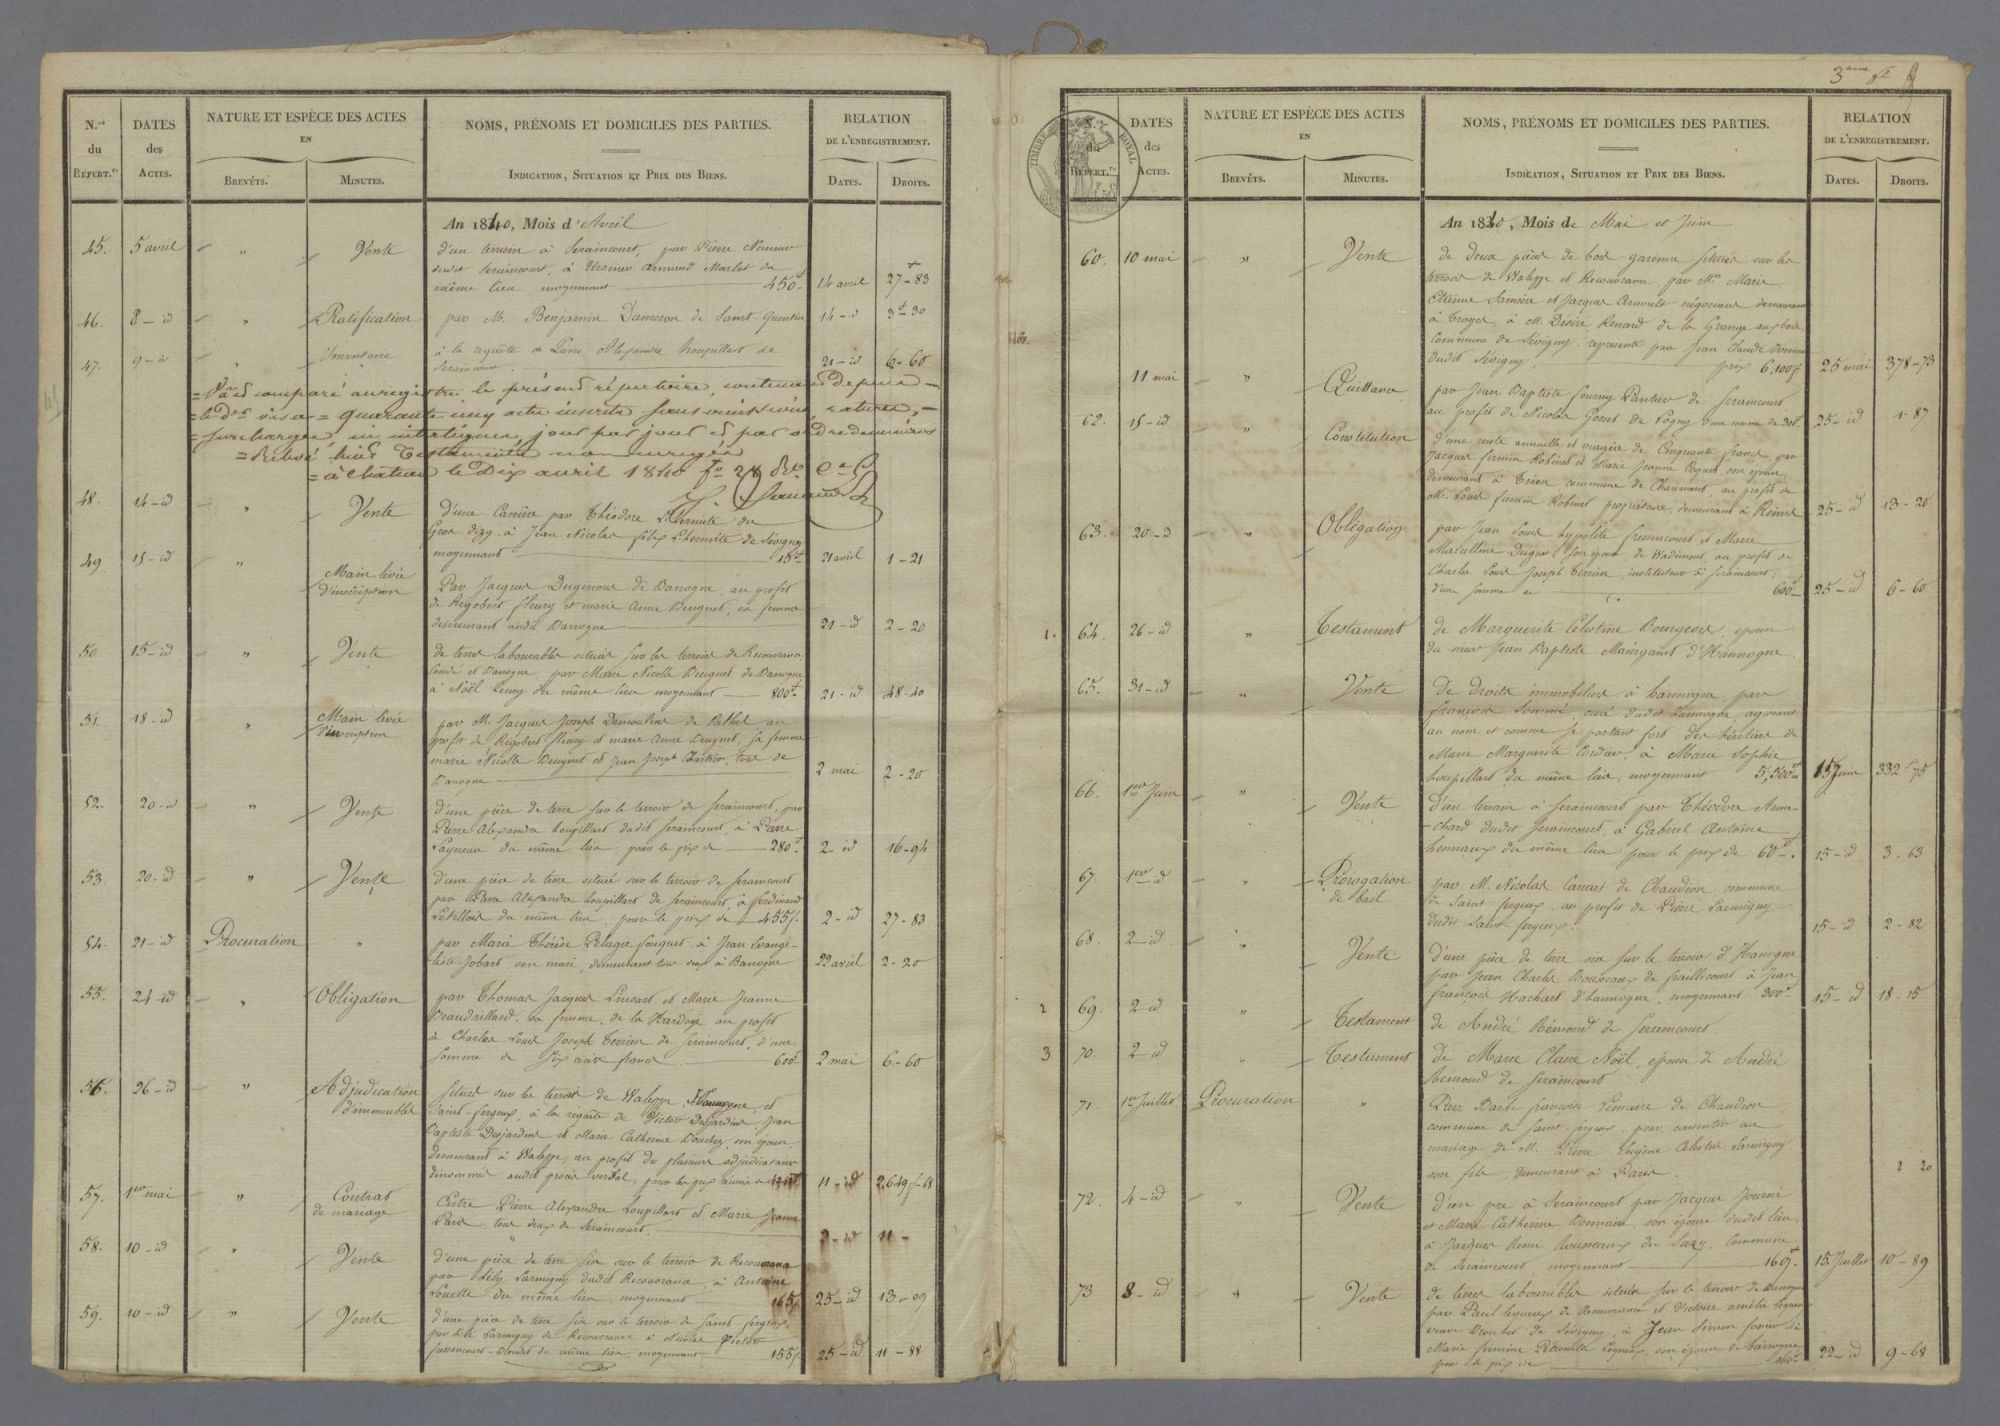 N.os du Répert.re
DATES des ACTES.
NATURE ET ESPÈCE DES ACTES
EN
BREVÊTS.
MINUTES.
NOMS, PRÉNOMS ET DOMICILES DES PARTIES.
INDICATION, SITUATION ET PRIX DES BIENS.
RELATION
DE L'ENREGISTREMENT.
DATES.
DROITS.
An 1840, Mois d'Avril
45. 5 avril " Vente d'un terrain à Seraincourt, par Pierre
dudit Seraincourt, à Armand Marlot du
même lieu moyennant 450 14 avril 27-83
46. 8-id " Ratification par M. Benjamin Dameron de Saint Quentin 14-d 3-30
47. 9-id " Inventaire à la requête de Pierre Alexandre Loupillart de
Seraincourt. 21-id 6-60
le présent répertoire, contenant depuis
quarante cinq actes inscrits sans omissions, ratures,
surcharges, ni interlignes, jour par jour et par ordre de numéros
à Chateau le Dix avril 1840
48. 14-id " Vente d'une Carrière par Théodore Lhermite du
Gros dizy, à Jean Nicolas félix Lhermite de Sévigny
moyennant 15 21 avril 1-21
49 15-id " Main-levée
d'inscription Par Jacques de Banogne, au profit
de Rigobert fleury et marie Anne Deugnet, sa femme
demeurant audit Banogne 21-id 2-20
50. 15-id " Vente de terres labourables situées sur les terroirs de Recouvrance
Condé et Banogne par Marie Nicolle Deugnet de Banogne
à Noël Leury du même lieu moyennant 800 21-id 48-40
51. 18-id " Main levée
d'inscription par M. Jacques Joseph Demoulins de Rethel au
profit de Rigobert fleury et marie Anne Deugnet, sa femme
marie Nicolle Deugnet et Jean Joseph Chartier, tous de
Banogne 2 mai 2-20
52. 20-id " Vente d'une pièce de terre sur le terroir de Seraincourt, par
Pierre Alexandre Loupillart dudit Seraincourt, à Pierre
du même lieu, pour le prix de 280 2-id 16-94
53. 20-id " Vente d'une pièce de terre située sur le terroir de Seraincourt
par Pierre Alexandre Loupillart de Seraincourt, à ferdinand
du même lieu, pour le prix de 455f. 2-id 27-83
54. 21-id Procuration " par Marie Thérèse Pelagie fouquet, à Jean Evange-
liste Jobart, son mari, demeurant tous deux à Banogne 22 avril 2-20
55. 24-id " Obligation par Thomas Jacques Linsart et Marie Jeanne
Beaudrillard, sa femme, de la Hardoye au profit
de Charles Louis Joseph Terrien de Seraincourt, d'une
somme de Six cents francs 600 2 mai 6-60
56. 26-id " Adjudication
d'immeubles situés sur les terroirs de Waleppe, Hannogne, et
Saint-fergeux, à la requête de Victor Desjardins, Jean
Baptiste Desjardins et Marie Catherine Douchez, son épouse,
demeurant à Waleppe, au profit de plusieurs adjudicataires
dénommés audit procès verbal, pour les prix réunis 11-id 2,649f-68
57. 1er mai " Contrat
de mariage Entre Pierre Alexandre Loupillart et Marie Jeanne
Paris, tous deux de Seraincourt. 2-id 11-
58. 10-id " Vente d'une pièce de terre sise sur le terroir de Recouvrance
par Larmigny dudit Recouvrance, à Antoine
Louette du même lieu, moyennant 165f 25-id 13-09
59. 10-id " Vente d'une pièce de terre sise sur le terroir de Saint fergeux,
par Larmigny de Recouvrance à Nicolas Victor
du même lieu, moyennant 155f. 25-id 11-88
3
TIMBRE ROYAL
N.os du Répert.re
DATES des ACTES.
NATURE ET ESPÈCE DES ACTES
EN
BREVÊTS.
MINUTES.
NOMS, PRÉNOMS ET DOMICILES DES PARTIES.
INDICATION, SITUATION ET PRIX DES BIENS.
RELATION
DE L'ENREGISTREMENT.
DATES.
DROITS.
An 1840, Mois de Mai et Juin
60. 10 mai " Vente de deux pièces de bois garenne situées sur les
terroirs de Waleppe et Recouvrance par Mrs Marie
Etienne Samsère et Jacques Arnoult négociant demeurant
à Troyes, à M. Désiré Renard de la Grange aux bois
commune de Sévigny, représenté par Jean Claude
dudit Sévigny. prix 6,100f 25 mai 378-73
11 mai " Quittance par Jean Baptiste fourny Pantier de Seraincourt
au profit de Nicolas de d'une somme de 300 25-id 1-87
62. 15-id " Constitution d'une rente annuelle et viagère de Cinquante francs, par
Jacques firmin Robinet et Marie Jeanne Coquet son épouse
demeurant à Trion, commune de Chaumont, au profit de
M. Louis firmin Robinet propriétaire, demeurant à Reims 25-id 13-20
63. 20-d " Obligation par Jean Louis hypolite et Marie
Marcelline son épouse de Wadimont, au profit de
Charles Louis Joseph Terrien, instituteur à Seraincourt,
d'une somme de 600 25-id 6-60
1. 64. 26-id " Testament de Marguerite Célestine Bourgeois, épouse
du sieur Jean Baptiste Maingant d'Hannogne.
65. 31-id " Vente de droits immobiliers à hannogne, par
françois Sommé, curé dudit hannogne, agissant
au nom et comme se portant fort des héritiers de
Marie Marguerite Cordier, à Marie Sophie
Loupillart du même lieu, moyennant 5,500 15 Juin 332-75
66. 1er Juin " Vente d'un terrain à Seraincourt par Théodore
dudit Seraincourt, à Gabriel Antoine
hennaux du même lieu pour le prix de 60. 15-id 3-63
67. 1er-d " Prorogation
de bail par M. Nicolas Canart de Chaudion, commune
de Saint fergeux, au profit de Pierre Larmigny
dudit Saint-fergeux. 15-id 2-82
68. 2-id " Vente d'une pièce de terre sise sur le terroir d'Hannogne
par Jean Charles Bonneaux de fraillicourt à Jean
françois Hachart d'hannogne, moyennant 300 15-id 18-15
2 69. 2-id " Testament de André Rémond de Seraincourt.
3 70. 2-id " Testament de Marie Claire Noël, épouse de André
Remond de Seraincourt
71 1er Juillet Procuration " Par Barbe françoise Lemaire de Chaudion,
commune de Saint fergeux, pour consentir au
mariage de M. Pierre Eugène Célestin Larmigny
son fils, demeurant à Paris. 2 20
72. 4-id " Vente d'un pré à Seraincourt par Jacques Journé
et Marie Catherine son épouse dudit lieu,
à Jacques Remi Rousseaux du commune
de Seraincourt, moyennant 160f. 15 Juillet 10-89
73 8-id " Vente de terres labourables situées sur le terroir de Banogne
par Paul Lequeux de Recouvrance et Victoire amélie Lequeux
veuve de Sévigny, à Jean Simon et à
Marie firmine Lequeux, son épouse de Banogne
pour le prix de 160 22-id 9-68